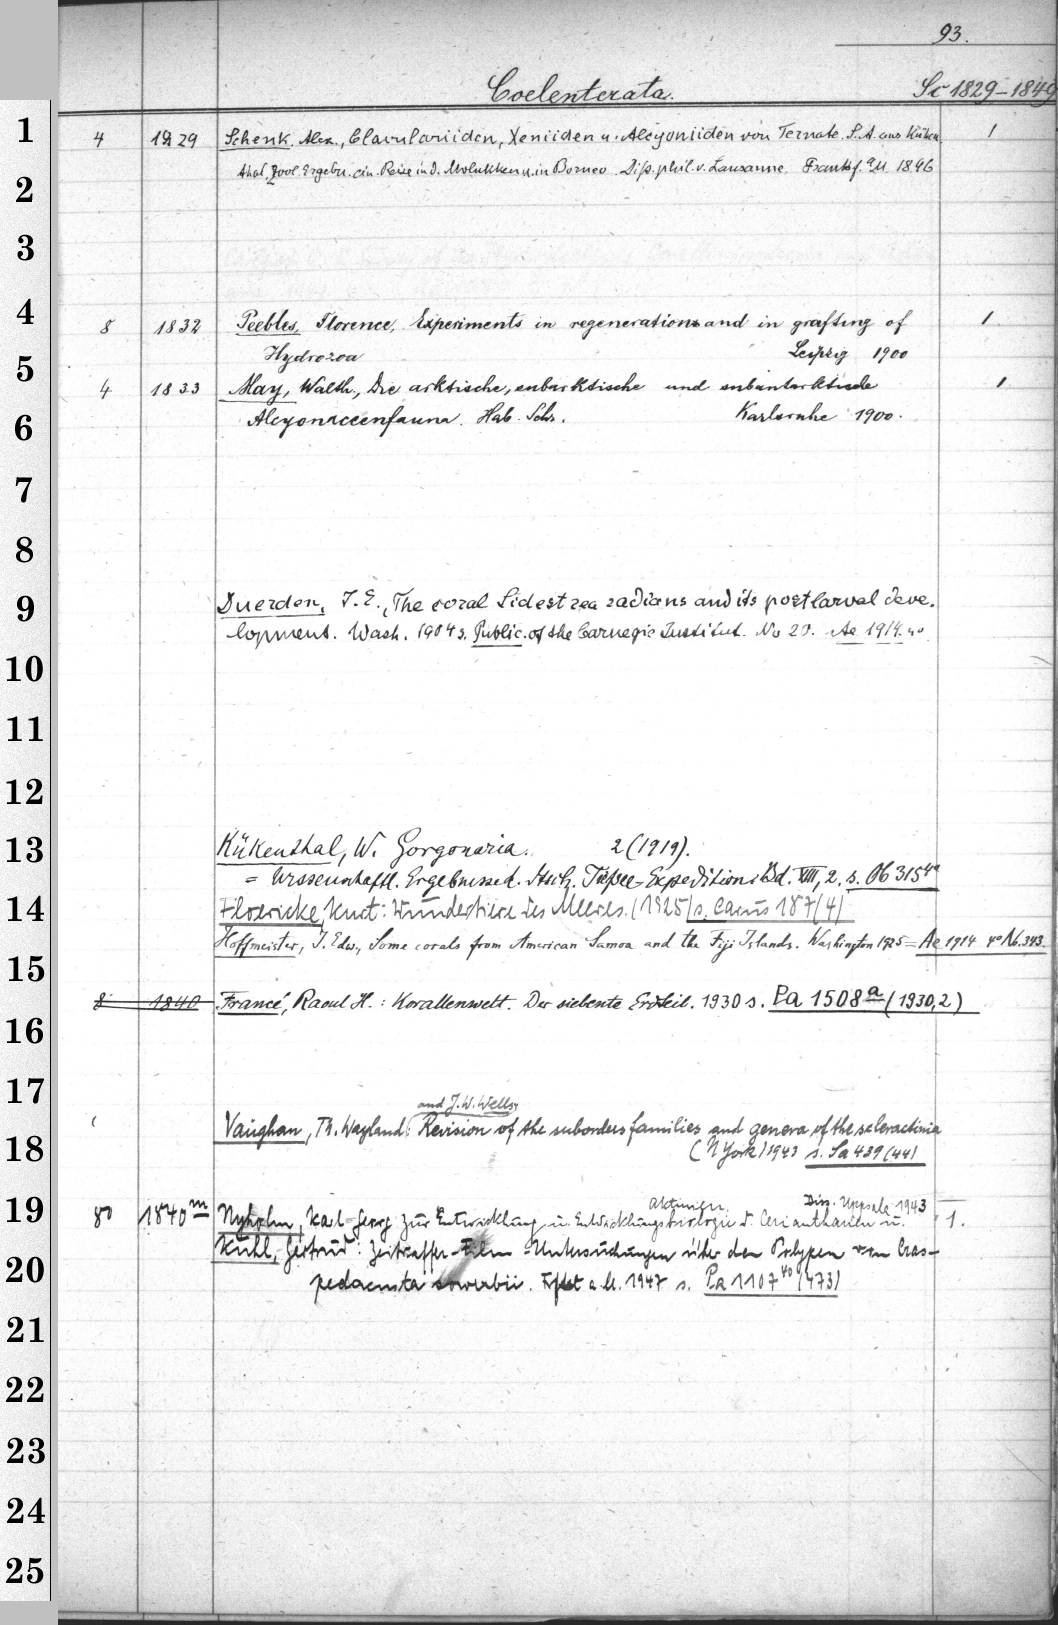 93.
Coelenterata. Sc 1829-1849
1
2
3
4
5
6
7
8
9
10
11
12
13
14
15
16
17
18
19
20
21
22
23
24
25
4 1829 Schenk, Alex., Clavulariiden, Xeniiden u. Alcyoniiden von Ternate. S.A. aus Küken 1
thal, Zool. Ergebn. ein. Reise in d. Molukken u. in Borneo. Diss. phil. v. Lausanne. Frankf. a/M 1896
8 1832 Peebles, Florence, Experiments in regeneration and in grafting of 1
Hydrozoa Leipzig 1900
4 1833 May, Walth., Die arktische, subarktische und subantarktische 1
Alcyonaceenfauna. Hab. Schr. Karlsruhe 1900.
Duerden, J. E., The coral Siderastrea radians and its postlarval deve-
lopment. Wash. 1904 s. Public. of the Carnegie Institut. No 20. Ae 1914. 4o
Kükenthal, W. Gorgonaria. 2 (1919).
= Wissenschaftl. Ergebnisse d. Dtsch. Tiefsee-Expedition Bd. XIII, 2. s. Ob 315 4o
Floericke, Kurt: Wundertiere des Meeres. (1925) s. Carus 187 (4)
Hoffmeister, J. Edw., Some corals from American Samoa and the Fiji Islands. Washington 1925 = Ae 1914 4o No. 343.
8 1840 Francé, Raoul H.: Korallenwelt. Der siebente Erdteil. 1930 s. Pa 1508 a (1930,2)
and J. W. Wells,
Vaughan, Th. Wayland, Revision of the suborders families and genera of the scleractinia
(N York) 1943 s. Sa 439 (44)
Aktinien. Diss. Uppsala 1943
80 1840 m Nyholm, Karl-Georg Zur Entwicklung u. Entwicklungsbiologie d. Ceriantharien u. 1.
Kuhl, Gertrud: Zeitraffer-Film-Untersuchungen über den Polypen von Cras-
pedacusta sowerbii. Fft a. M. 1947 s. Pa 1107 4o (473)